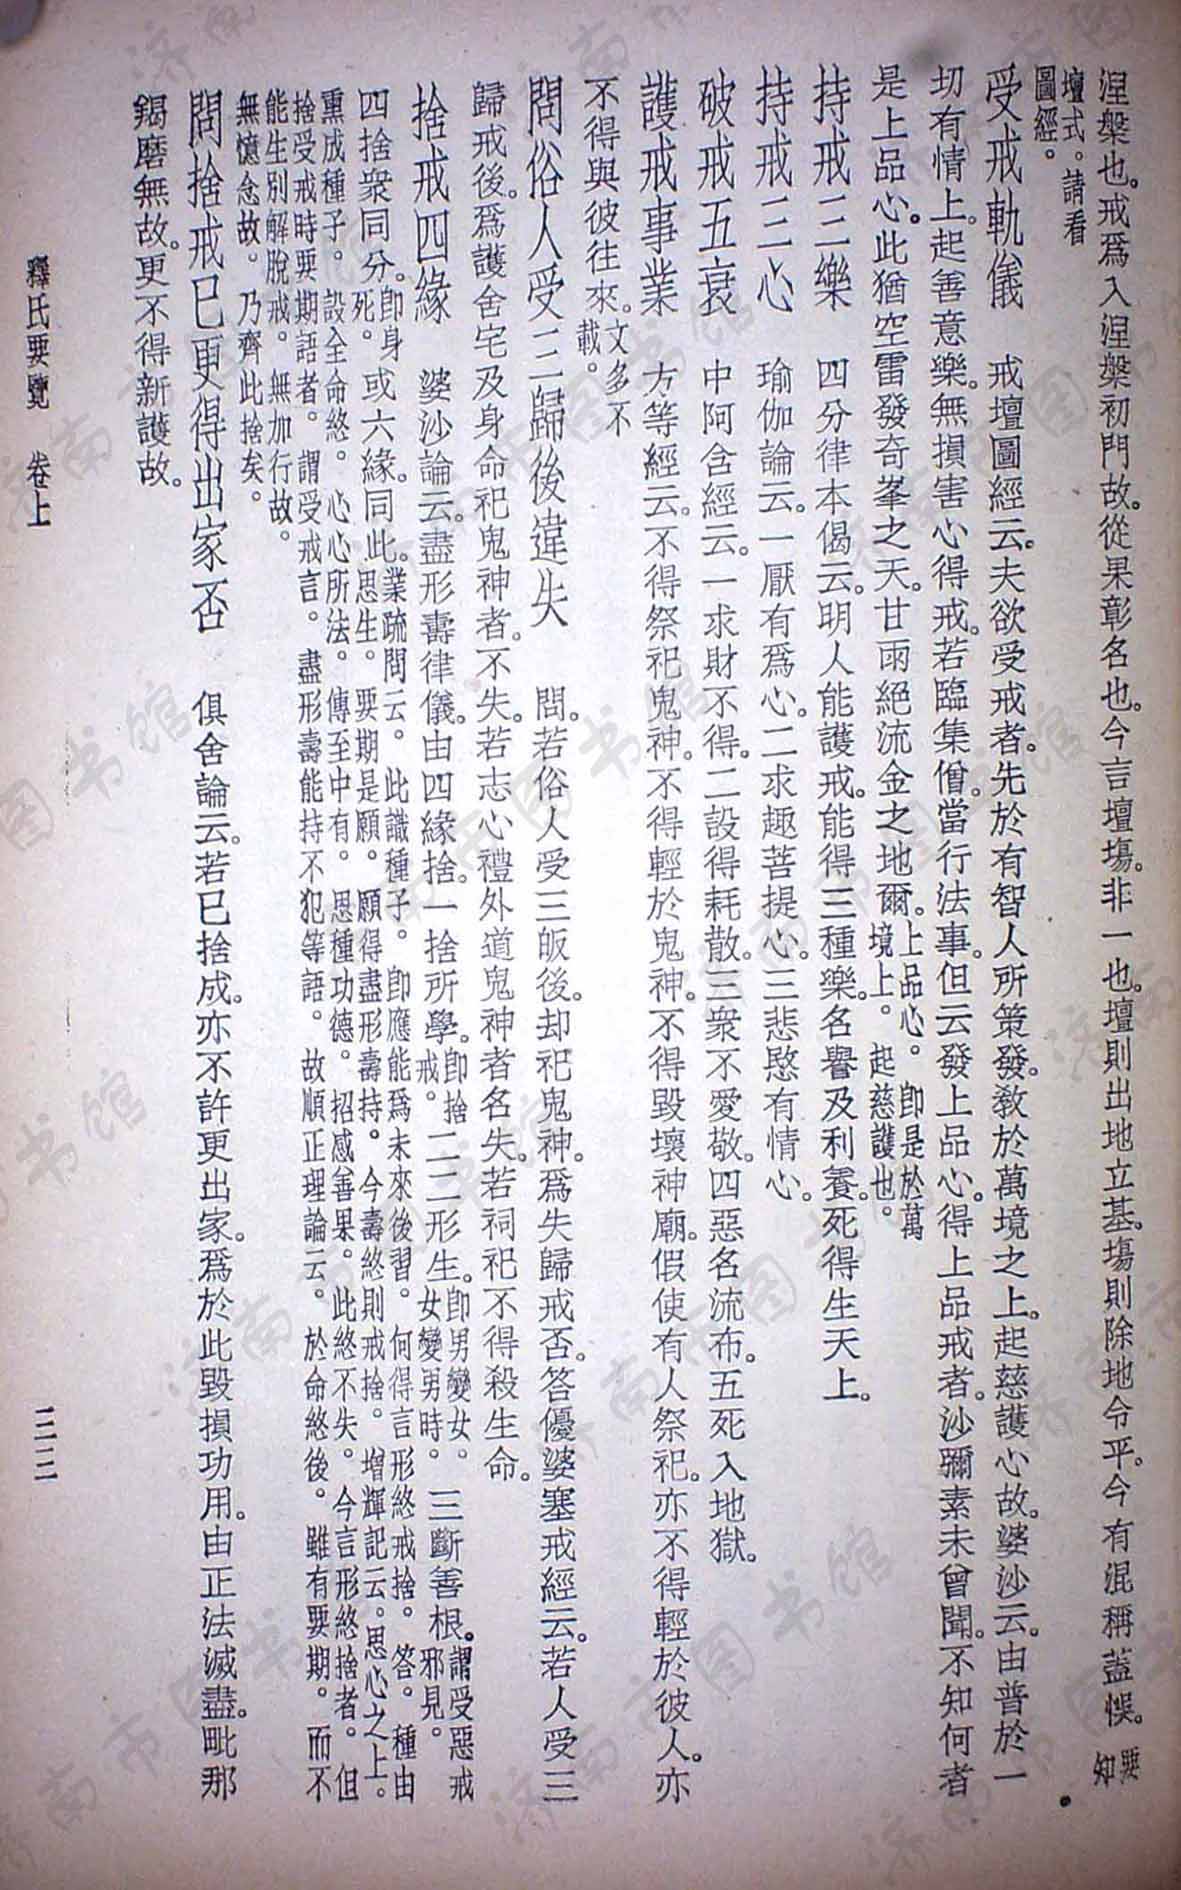 涅槃也。戒爲入涅槃初門故。從果彰名也。今言壇塲。非一也。壇則出地立基。塲則除地令平。今有混稱蓋悞。要知
壇式。請看
圖經。
受戒軌儀　戒壇圖經云。夫欲受戒者。先於有智人所策發。敎於萬境之上。起慈護心故。婆沙云。由普於一
切有情上。起善意樂。無損害心得戒。若臨集僧。當行法事。但云發上品心。得上品戒者。沙彌素未曾聞。不知何者
是上品心。此猶空雷發奇峯之天。甘雨絕流金之地爾。上品心。卽是於萬境上。起慈護也。
持戒三樂　四分律本偈云。明人能護戒。能得三種樂。名譽及利養。死得生天上。
持戒三心　瑜伽論云。一厭有爲心。二求趣菩提心。三悲愍有情心。
破戒五衰　中阿含經云。一求財不得。二設得耗散。三衆不愛敬。四惡名流布。五死入地獄。
護戒事業　方等經云。不得祭祀鬼神。不得輕於鬼神。不得毀壞神廟。假使有人祭祀。亦不得輕於彼人。亦
不得與彼往來。文多不載。
問俗人受三歸後違失　問。若俗人受三皈後。却祀鬼神。爲失歸戒否。答優婆塞戒經云。若人受三
歸戒後。爲護舍宅及身命祀鬼神者。不失。若志心禮外道鬼神者名失。若祠祀不得殺生命。
捨戒四緣　婆沙論云。盡形壽律儀。由四緣捨。一捨所學。卽捨戒。二二形生。卽男變女。女變男時。三斷善根。謂受惡戒邪見。
四捨衆同分。卽身死。或六緣。同此。業疏問云。此識種子。卽應能爲未來後習。何得言形終戒捨。答。種由
思生。要期是願。願得盡形壽持。今壽終則戒捨。增輝記云。思心之上。
熏成種子。設全命終。心心所法。傳至中有。思種功德。招感善果。此終不失。今言形終捨者。但
捨受戒時要期語者。謂受戒言。盡形壽能持不犯等語。故順正理論云。於命終後。雖有要期。而不
能生別解脫戒。無加行故。
無憶念故。乃齊此捨矣。
問捨戒已更得出家否　俱舍論云。若已捨成。亦不許更出家。爲於此毀損功用。由正法滅盡。毗那
鞨磨無故。更不得新護故。
釋氏要覽　卷上
三三